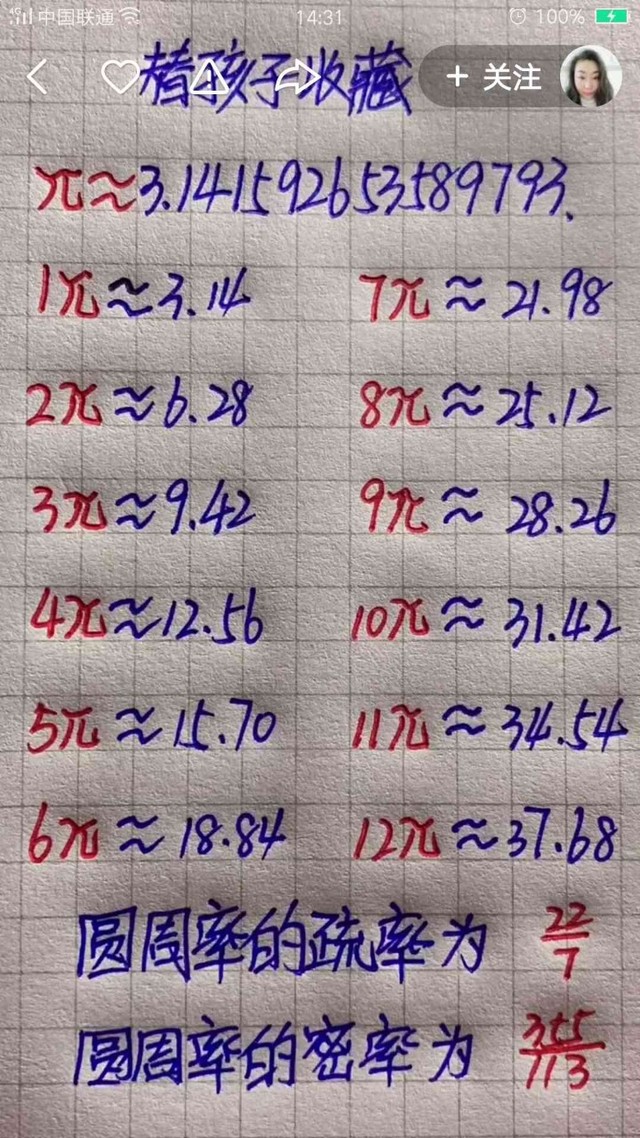 4G 中国联通 14:31 100%
替孩子收藏 + 关注
π≈3.141592653589793.
1π≈3.14 7π≈21.98
2π≈6.28 8π≈25.12
3π≈9.42 9π≈28.26
4π≈12.56 10π≈31.42
5π≈15.70 11π≈34.54
6π≈18.84 12π≈37.68
圆周率的疏率为 22/7
圆周率的密率为 355/113